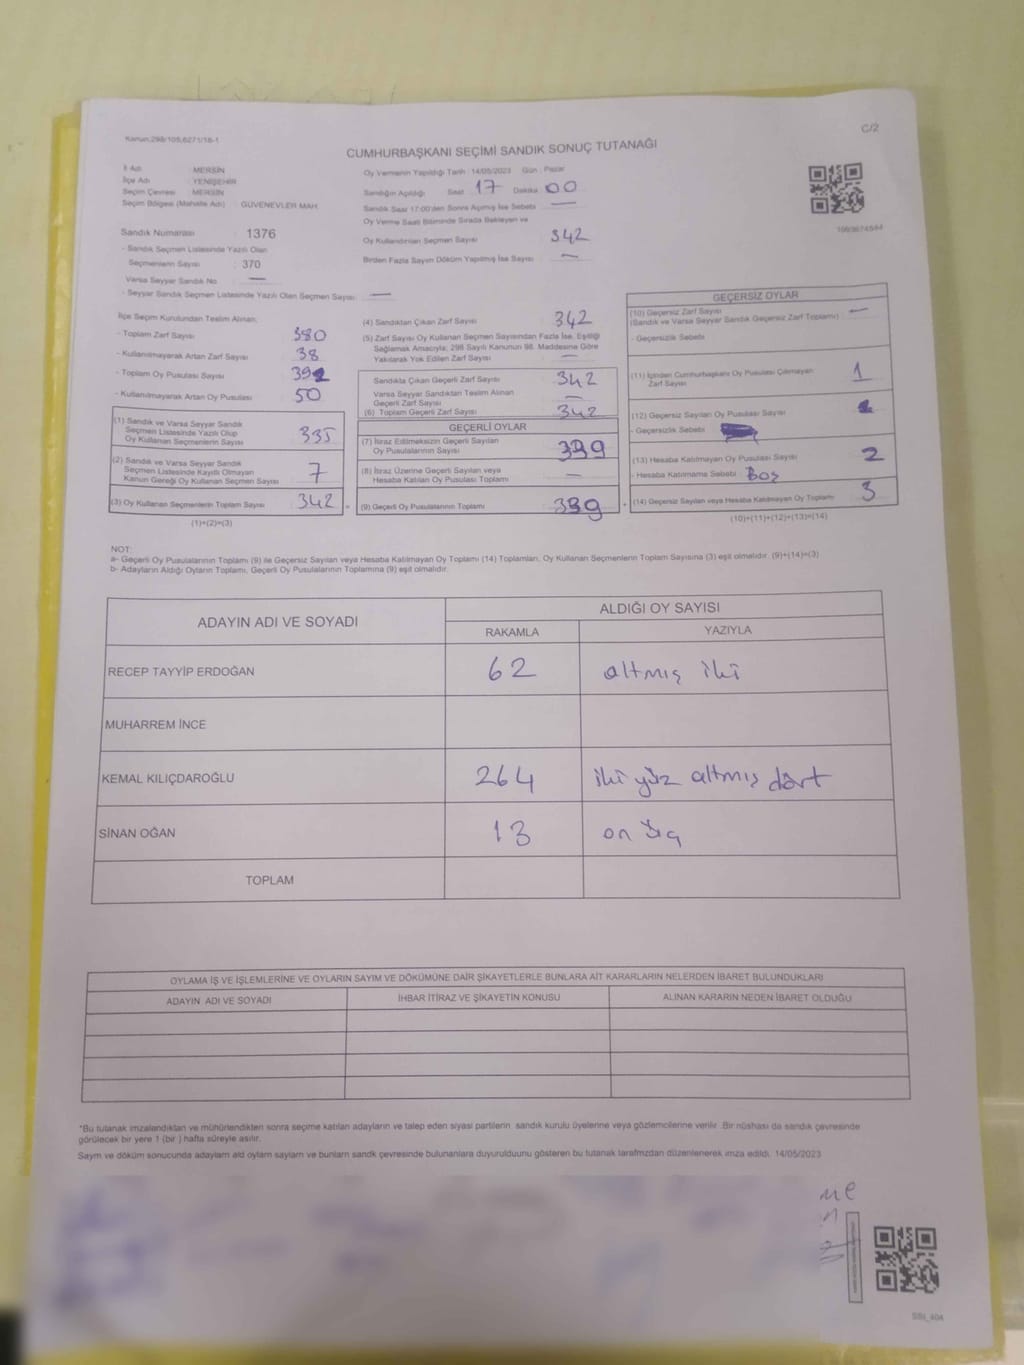 Kanun:298/105,6271/16-1
C/2
CUMHURBAŞKANI SEÇİMİ SANDIK SONUÇ TUTANAĞI
İl Adı : MERSİN
İlçe Adı : YENİŞEHİR
Seçim Çevresi : MERSİN
Seçim Bölgesi (Mahalle Adı) : GÜVENEVLER MAH.
Sandık Numarası : 1376
- Sandık Seçmen Listesinde Yazılı Olan
Seçmenlerin Sayısı : 370
Varsa Seyyar Sandık No : —
- Seyyar Sandık Seçmen Listesinde Yazılı Olan Seçmen Sayısı : —
Oy Vermenin Yapıldığı Tarih : 14/05/2023 Gün : Pazar
Sandığın Açıldığı Saat 17 Dakika 00
Sandık Saat 17:00'den Sonra Açılmış İse Sebebi —
Oy Verme Saati Bitiminde Sırada Bekleyen ve
Oy Kullandırılan Seçmen Sayısı 342
Birden Fazla Sayım Döküm Yapılmış İse Sayısı —
İlçe Seçim Kurulundan Teslim Alınan;
- Toplam Zarf Sayısı 380
- Kullanılmayarak Artan Zarf Sayısı 38
- Toplam Oy Pusulası Sayısı 392
- Kullanılmayarak Artan Oy Pusulası 50
(1) Sandık ve Varsa Seyyar Sandık
Seçmen Listesinde Yazılı Olup
Oy Kullanan Seçmenlerin Sayısı 335
(2) Sandık ve Varsa Seyyar Sandık
Seçmen Listesinde Kayıtlı Olmayan
Kanun Gereği Oy Kullanan Seçmen Sayısı 7
(3) Oy Kullanan Seçmenlerin Toplam Sayısı 342
(1)+(2)=(3)
(4) Sandıktan Çıkan Zarf Sayısı 342
(5) Zarf Sayısı Oy Kullanan Seçmen Sayısından Fazla İse, Eşitliği
Sağlamak Amacıyla, 298 Sayılı Kanunun 98. Maddesine Göre
Yakılarak Yok Edilen Zarf Sayısı —
Sandıkta Çıkan Geçerli Zarf Sayısı 342
Varsa Seyyar Sandıktan Teslim Alınan
Geçerli Zarf Sayısı —
(6) Toplam Geçerli Zarf Sayısı 342
GEÇERLİ OYLAR
(7) İtiraz Edilmeksizin Geçerli Sayılan
Oy Pusulalarının Sayısı 339
(8) İtiraz Üzerine Geçerli Sayılan veya
Hesaba Katılan Oy Pusulası Toplamı —
(9) Geçerli Oy Pusulalarının Toplamı 339
GEÇERSİZ OYLAR
(10) Geçersiz Zarf Sayısı —
(Sandık ve Varsa Seyyar Sandık Geçersiz Zarf Toplamı)
- Geçersizlik Sebebi
(11) İçinden Cumhurbaşkanı Oy Pusulası Çıkmayan
Zarf Sayısı 1
(12) Geçersiz Sayılan Oy Pusulası Sayısı
- Geçersizlik Sebebi
(13) Hesaba Katılmayan Oy Pusulası Sayısı 2
- Hesaba Katılmama Sebebi Boş
(14) Geçersiz Sayılan veya Hesaba Katılmayan Oy Toplamı 3
(10)+(11)+(12)+(13)=(14)
NOT:
a- Geçerli Oy Pusulalarının Toplamı (9) ile Geçersiz Sayılan veya Hesaba Katılmayan Oy Toplamı (14) Toplamları, Oy Kullanan Seçmenlerin Toplam Sayısına (3) eşit olmalıdır. (9)+(14)=(3)
b- Adayların Aldığı Oyların Toplamı, Geçerli Oy Pusulalarının Toplamına (9) eşit olmalıdır.
ADAYIN ADI VE SOYADI
ALDIĞI OY SAYISI
RAKAMLA YAZIYLA
RECEP TAYYİP ERDOĞAN 62 altmış iki
MUHARREM İNCE
KEMAL KILIÇDAROĞLU 264 iki yüz altmış dört
SİNAN OĞAN 13 on üç
TOPLAM
OYLAMA İŞ VE İŞLEMLERİNE VE OYLARIN SAYIM VE DÖKÜMÜNE DAİR ŞİKAYETLERLE BUNLARA AİT KARARLARIN NELERDEN İBARET BULUNDUKLARI
ADAYIN ADI VE SOYADI İHBAR İTİRAZ VE ŞİKAYETİN KONUSU ALINAN KARARIN NEDEN İBARET OLDUĞU
*Bu tutanak imzalandıktan ve mühürlendikten sonra seçime katılan adayların ve talep eden siyasi partilerin sandık kurulu üyelerine veya gözlemcilerine verilir. Bir nüshası da sandık çevresinde
görülecek bir yere 1 (bir ) hafta süreyle asılır.
Sayım ve döküm sonucunda adayların ald oyların sayların ve bunların sandk çevresinde bulunanlara duyurulduunu gösteren bu tutanak tarafmzdan düzenlenerek imza edildi. 14/05/2023